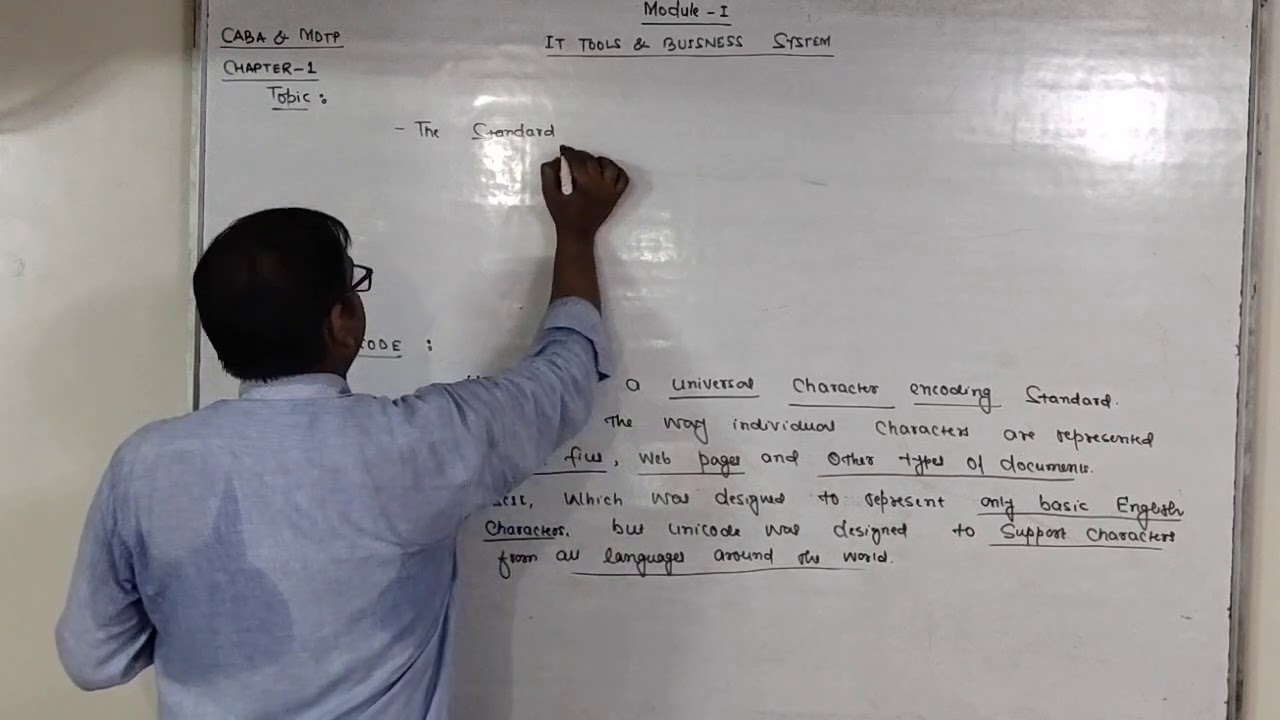 Module - I
CABA & MDTP
IT TOOLS & BUISNESS SYSTEM
CHAPTER-1
Topic :
- The Standard
CODE :
a universal Character encoding Standard.
The way individual characters are represented
files, web pages and other types of documents.
which was designed to represent only basic English
Characters. but unicode was designed to support characters
from all languages around the world.